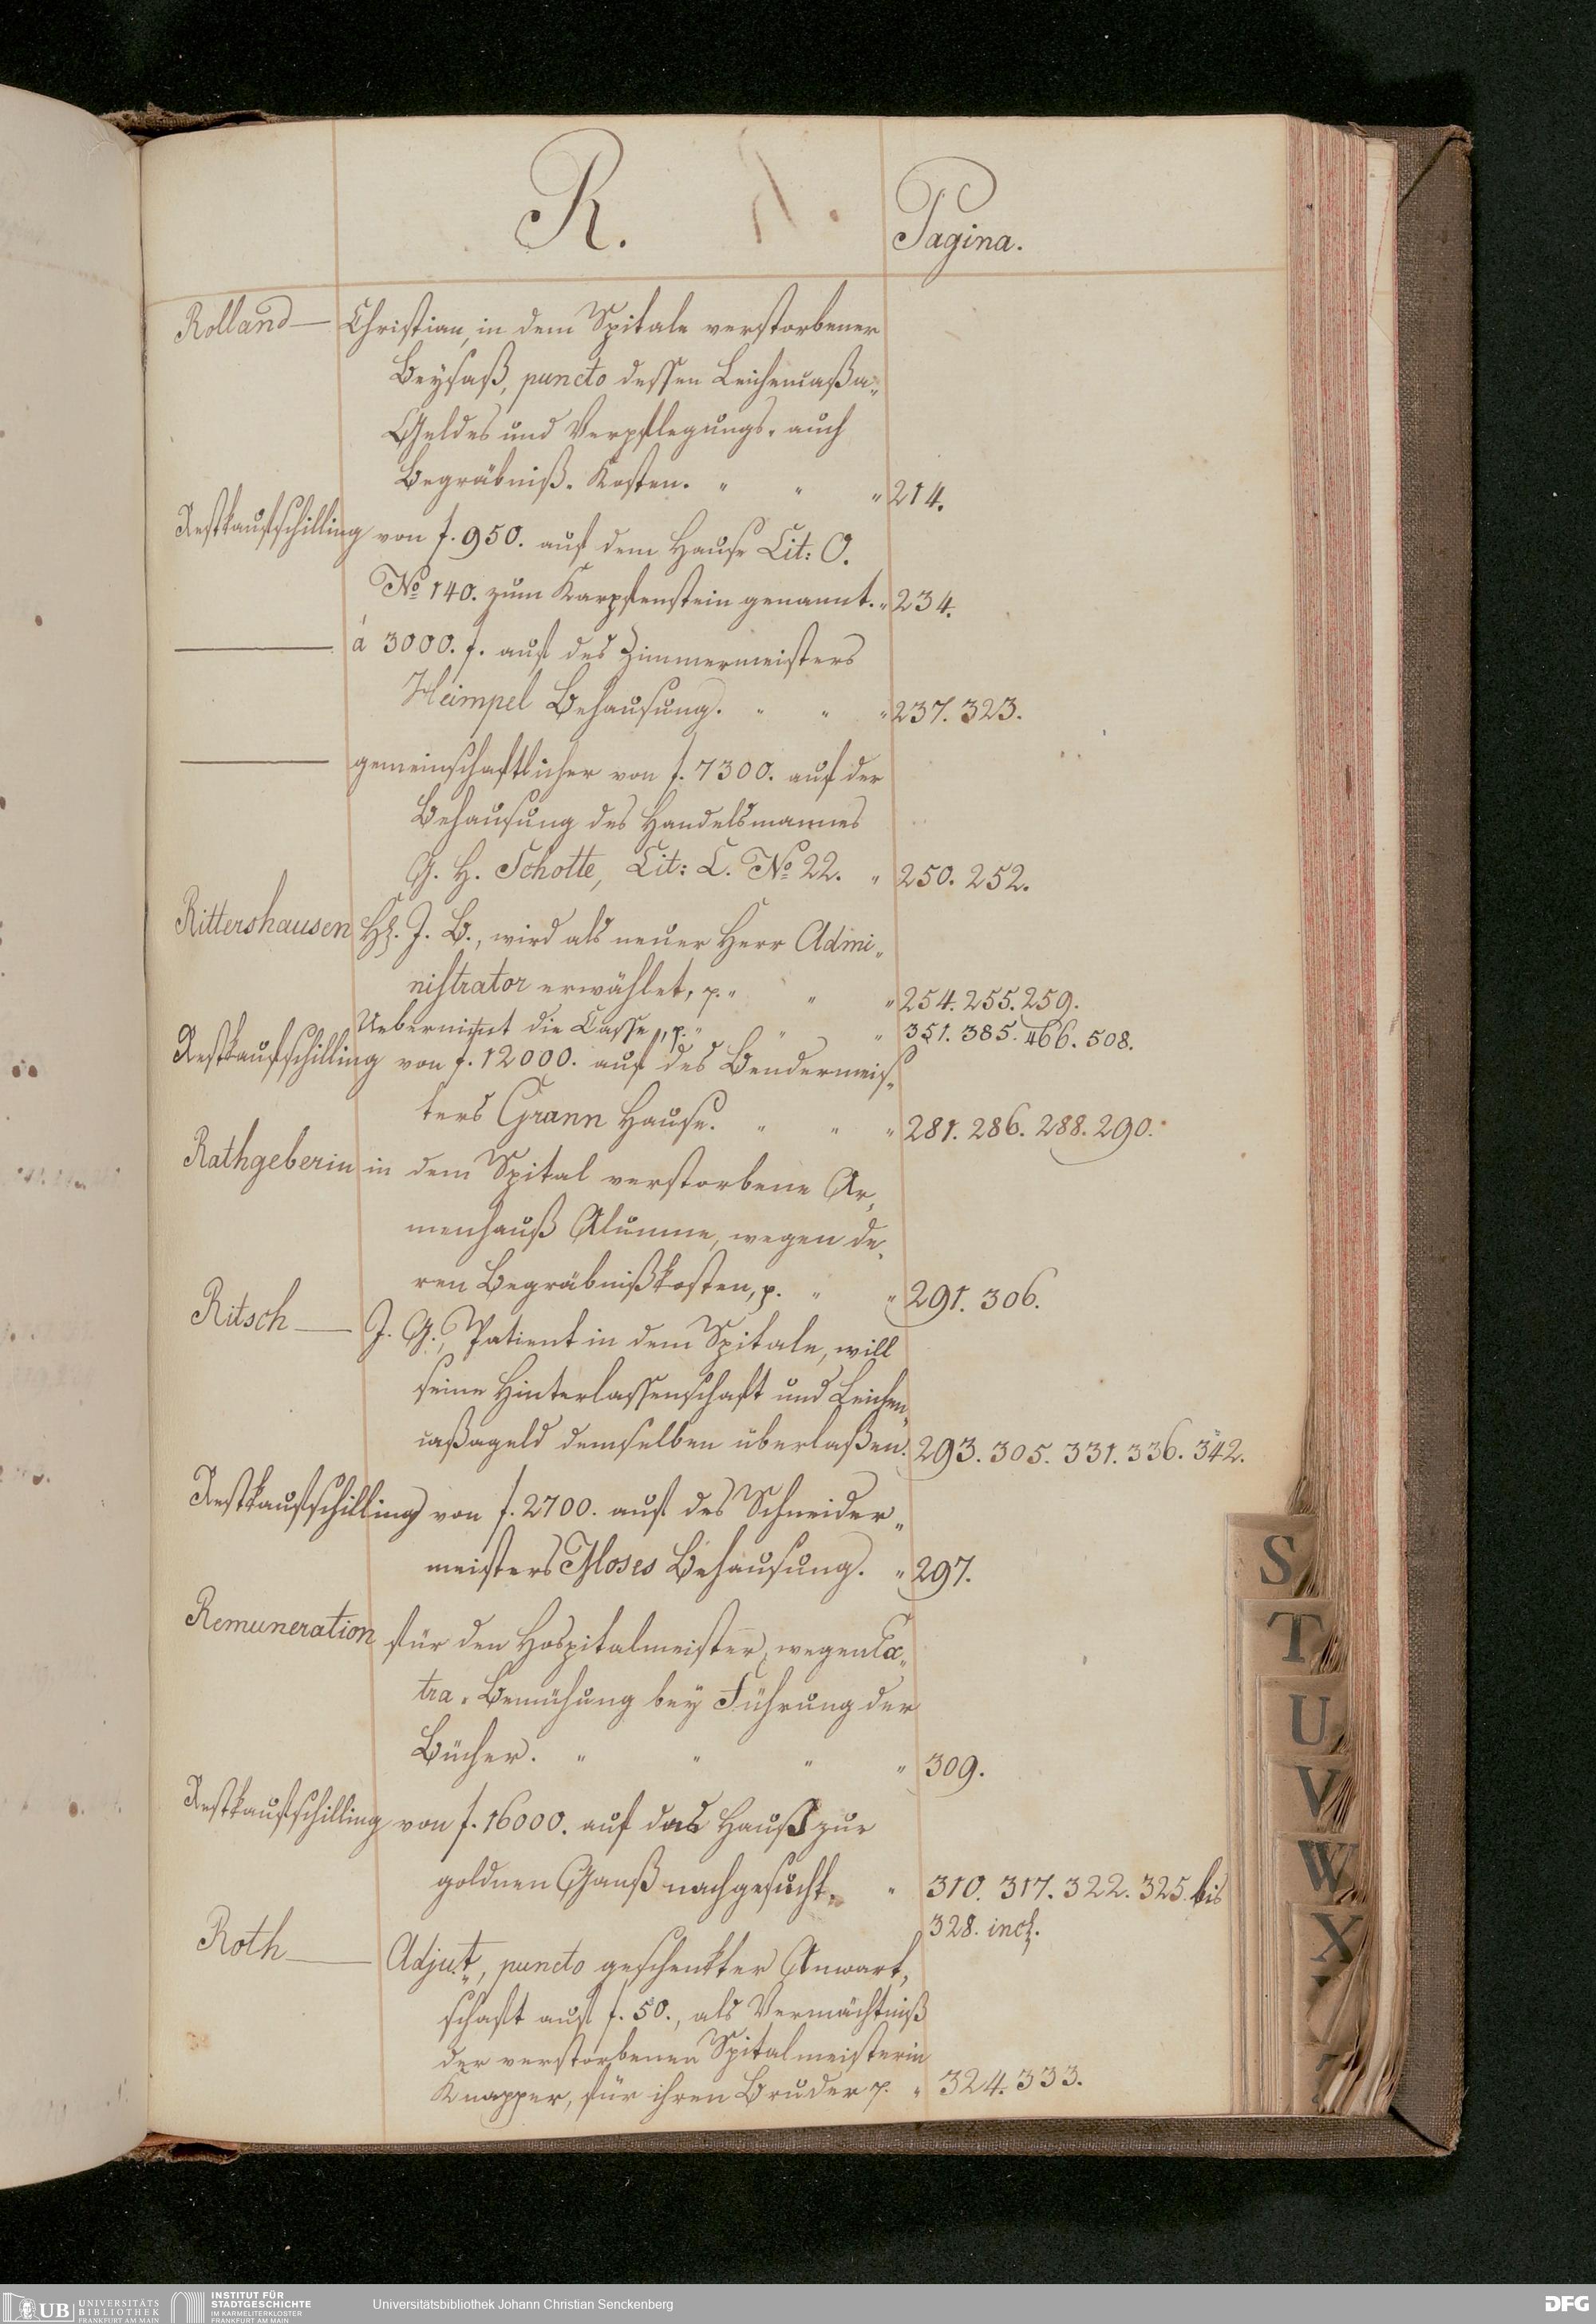 R.
Pagina.
Rolland — Christian, in dem Spitale verstorbener
Beysaß, puncto dessen Leichencaßa„
Geldes und Verpflegungs- auch
Begräbniß-Kosten. „ „ „ 214.
Restkaufschilling von f. 950. auf dem Hause Lit: O.
No 140. zum Karpfenstein genannt. „ 234.
— á 3000. f. auf des Zimmermeisters
Heimpel Behausung. „ „ „ 237. 323.
— gemeinschaftlicher von f. 7300. auf der
Behausung des Handelsmannes
G. H. Schotte, Lit: L. No 22. „ 250. 252.
Rittershausen H. J. B., wird als neuer Herr Admi„
nistrator erwählet, p. „ „ „ 254. 255. 259.
Uebernimt die Casse, p. „ „ „ 351. 385. 466. 508.
Restkaufschilling von f. 12000. auf des Bendermeis„
ters Grann Hause. „ „ „ 281. 286. 288. 290.
Rathgeberin in dem Spital verstorbene Ar„
menhauß Alumne, wegen de„
ren Begräbnißkosten, p. „ „ 291. 306.
Ritsch — J. G., Patient in dem Spitale, will
seine Hinterlassenschaft und Leichen„
caßageld demselben überlaßen. 293. 305. 331. 336. 342.
Restkaufschilling von f. 2700. auf des Schneider„
meisters Moses Behausung. „ 297.
Remuneration für den Hospitalmeister, wegen Ex„
tra-Bemühung bey Führung der
Bücher. „ „ „ „ 309.
Restkaufschilling von f. 16000. auf das Hauß zur
goldnen Ganß nachgesucht. „ 310. 317. 322. 325. bis
328. incl.
Roth — Adjut., puncto geschenkter Anwart„
schaft auf f. 50., als Vermächtniß
der verstorbenen Spitalmeisterin
Knapper, für ihren Bruder p. „ 324. 333.
S
T
U
V
W
X
UB UNIVERSITÄTS
BIBLIOTHEK
FRANKFURT AM MAIN
INSTITUT FÜR
STADTGESCHICHTE
IM KARMELITERKLOSTER
FRANKFURT AM MAIN
Universitätsbibliothek Johann Christian Senckenberg
DFG